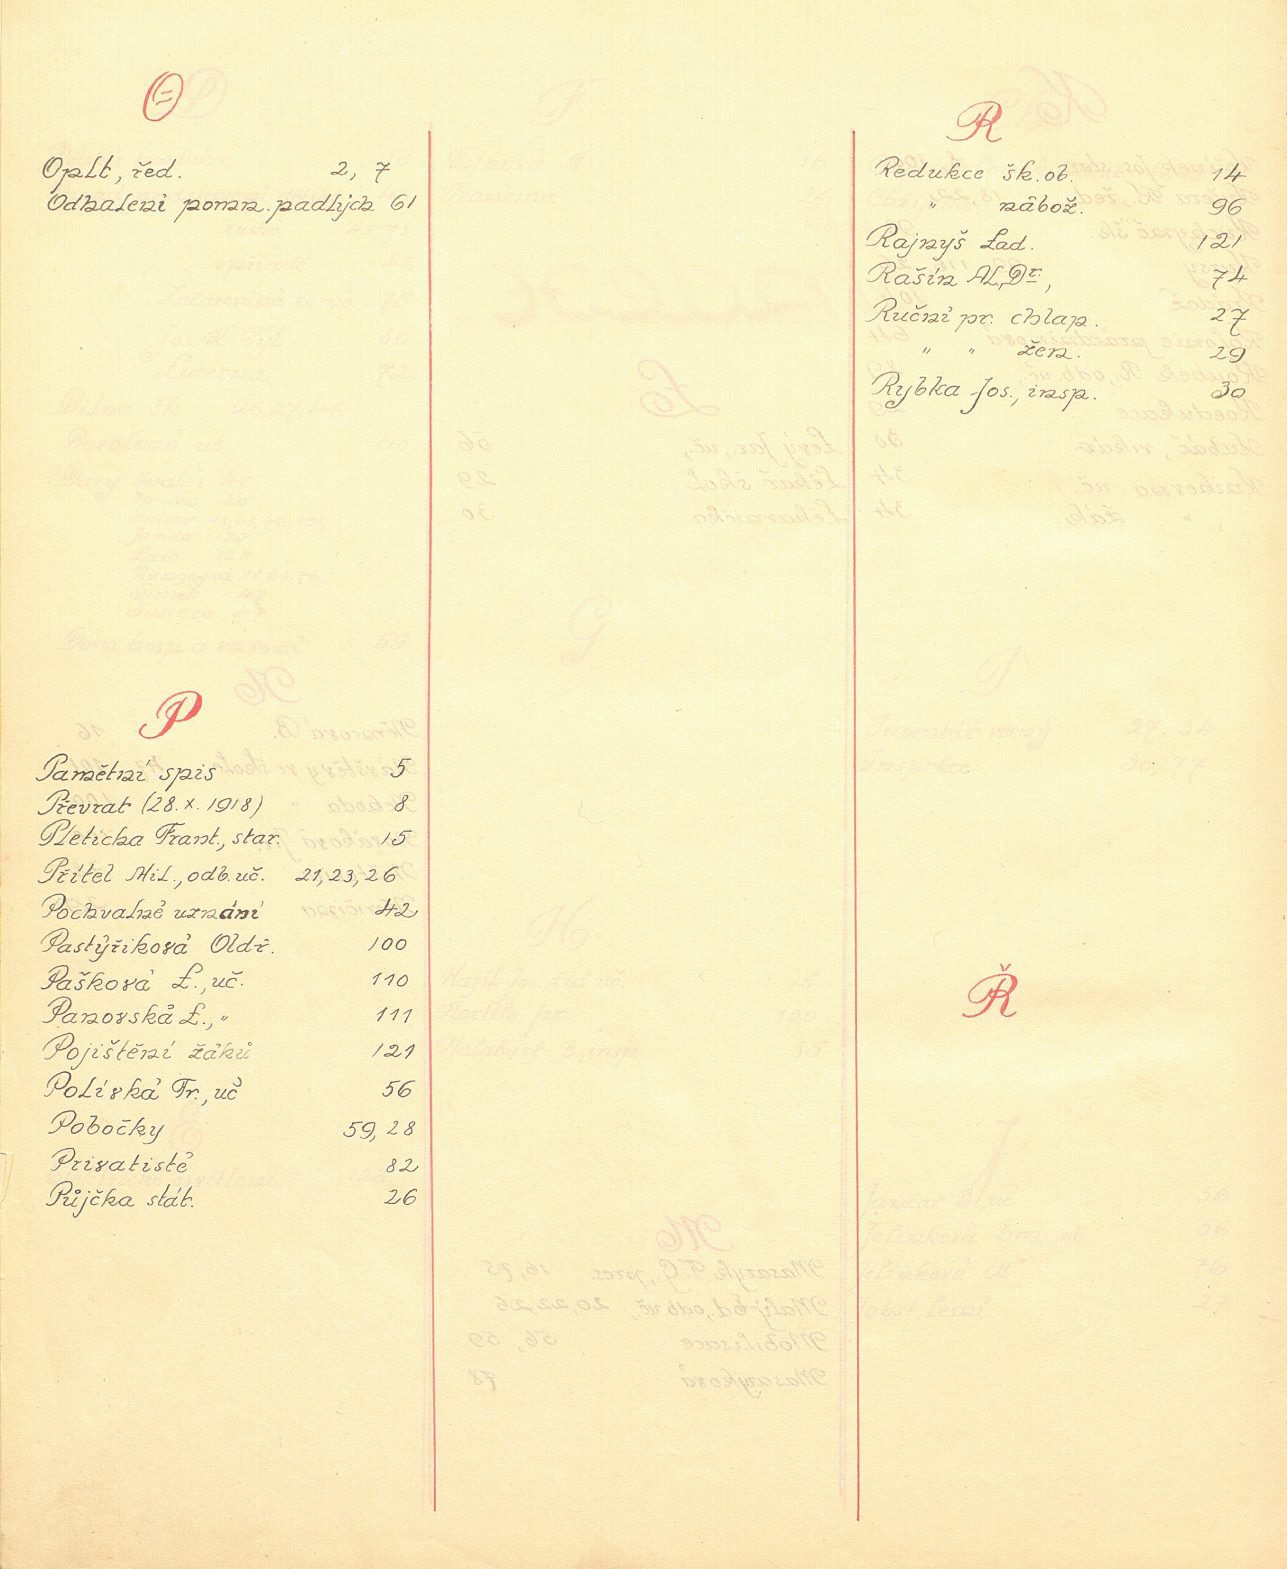 O
Oplt, řed. 2, 7
Odhalení pomn. padlých 61
P
Pamětní spis 5
Převrat (28. X. 1918) 8
Pleticha Frant., star. 15
Přítel Mil., odb. uč. 21, 23, 26
Pochvalné uznání 42
Pastýříková Oldř. 100
Pašková L., uč. 110
Panovská L., " 111
Pojištění žáků 121
Polívka Fr., uč 56
Pobočky 59, 28
Privatisté 82
Půjčka stát. 26
R
Redukce šk. ob. 14
" nábož. 96
Rajnyš Lad. 121
Rašín Al. Dr., 74
Ruční pr. chlap. 27
" " žen. 29
Rybka Jos., insp. 30
Ř